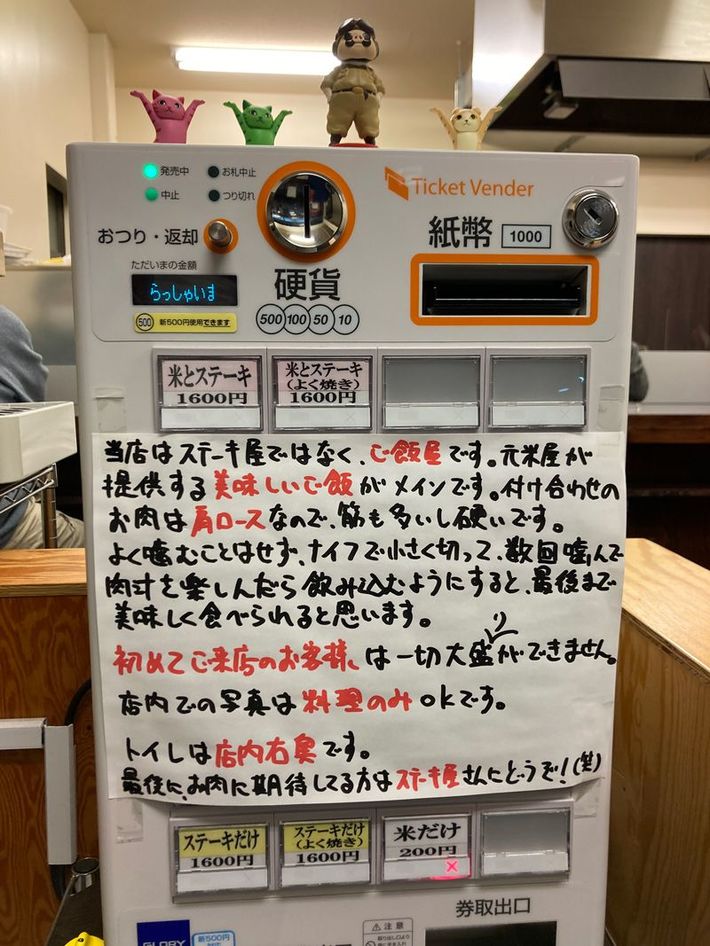 発売中 お札中止
中止 つり切れ
Ticket Vender
おつり・返却
紙幣 1000
ただいまの金額
らっしゃいま
硬貨
500 新500円使用できます
500 100 50 10
米とステーキ
1600円
米とステーキ
(よく焼き)
1600円
当店はステーキ屋ではなく、ご飯屋です。元米屋が
提供する美味しいご飯がメインです。付け合わせの
お肉は肩ロースなので、筋も多いし硬いです。
よく噛むことはせず、ナイフで小さく切って、数回噛んで
肉汁を楽しんだら飲み込むようにすると、最後まで
美味しく食べられると思います。
初めてご来店のお客様、は一切大盛りができません。
店内での写真は料理のみokです。
トイレは店内右奥です。
最後に、お肉に期待してる方はステーキ屋さんにどうぞ!(笑)
ステーキだけ
1600円
ステーキだけ
(よく焼き)
1600円
米だけ
200円
×
券取出口
GLORY
新500円
注意